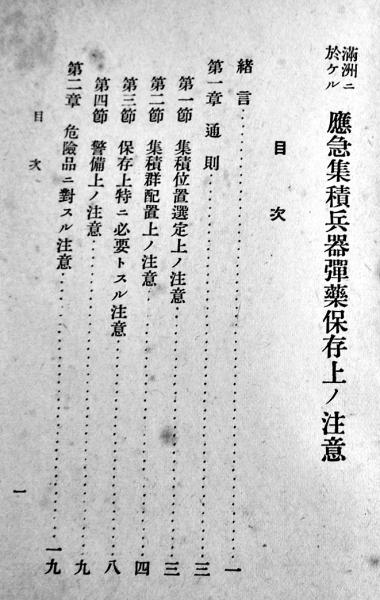 滿洲ニ
於ケル
應急集積兵器彈藥保存上ノ注意
目次
緒言……一
第一章 通則……三
第一節 集積位置選定上ノ注意……三
第二節 集積群配置上ノ注意……四
第三節 保存上特ニ必要トスル注意……八
第四節 警備上ノ注意……九
第二章 危險品ニ對スル注意……一九
目次
一